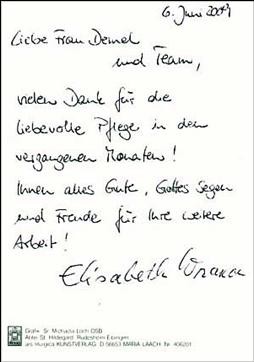 6. Juni 2009
Liebe Frau Demel
und Team,
vielen Dank für die
liebevolle Pflege in den
vergangenen Monaten!
Ihnen alles Gute, Gottes Segen
und Freude für Ihre weitere
Arbeit!
Elisabeth
Grafik: Sr. Michaela Lach OSB
Abtei St. Hildegard, Rüdesheim-Eibingen
ars liturgica KUNSTVERLAG D 56653 MARIA LAACH Nr. 406201